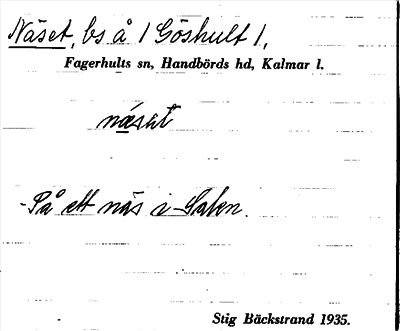 Näset, bs å /Göshult/,
Fagerhults sn, Handbörds hd, Kalmar l.
näsət
På ett näs i Salen.
Stig Bäckstrand 1935.